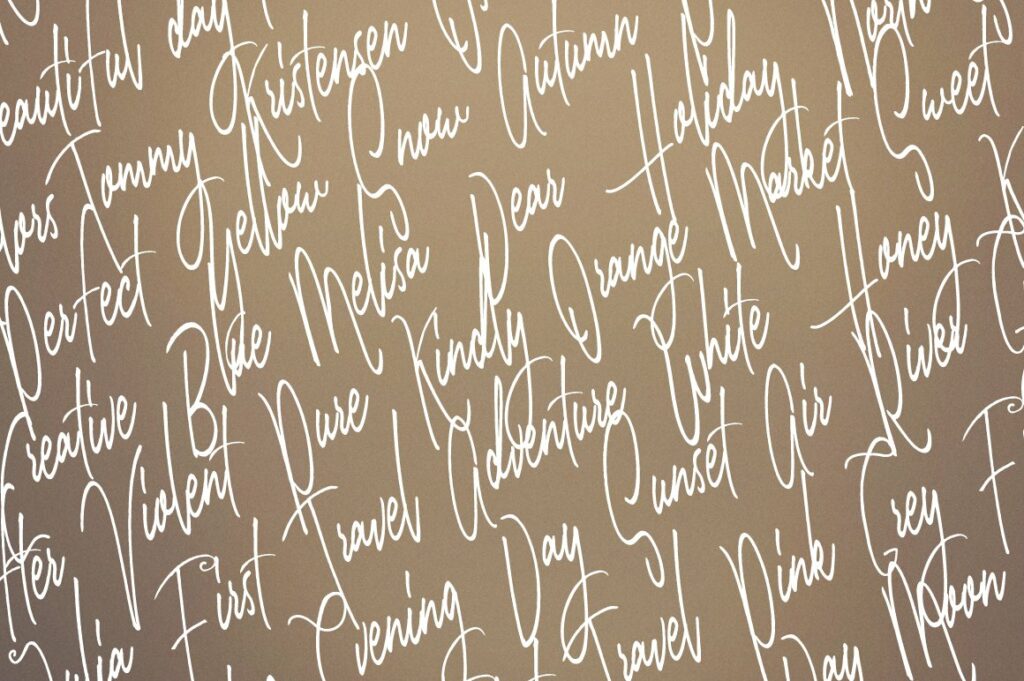 day
Tommy Kristensen
Perfect Yellow Snow Autumn
Creative Blue Melisa Dear Holiday
Her Violent Pure Kindly Orange Market Sweet
Julia First Travel Adventure White Honey
Evening Day Sunset Air River
Travel Pink Grey
Day Moon